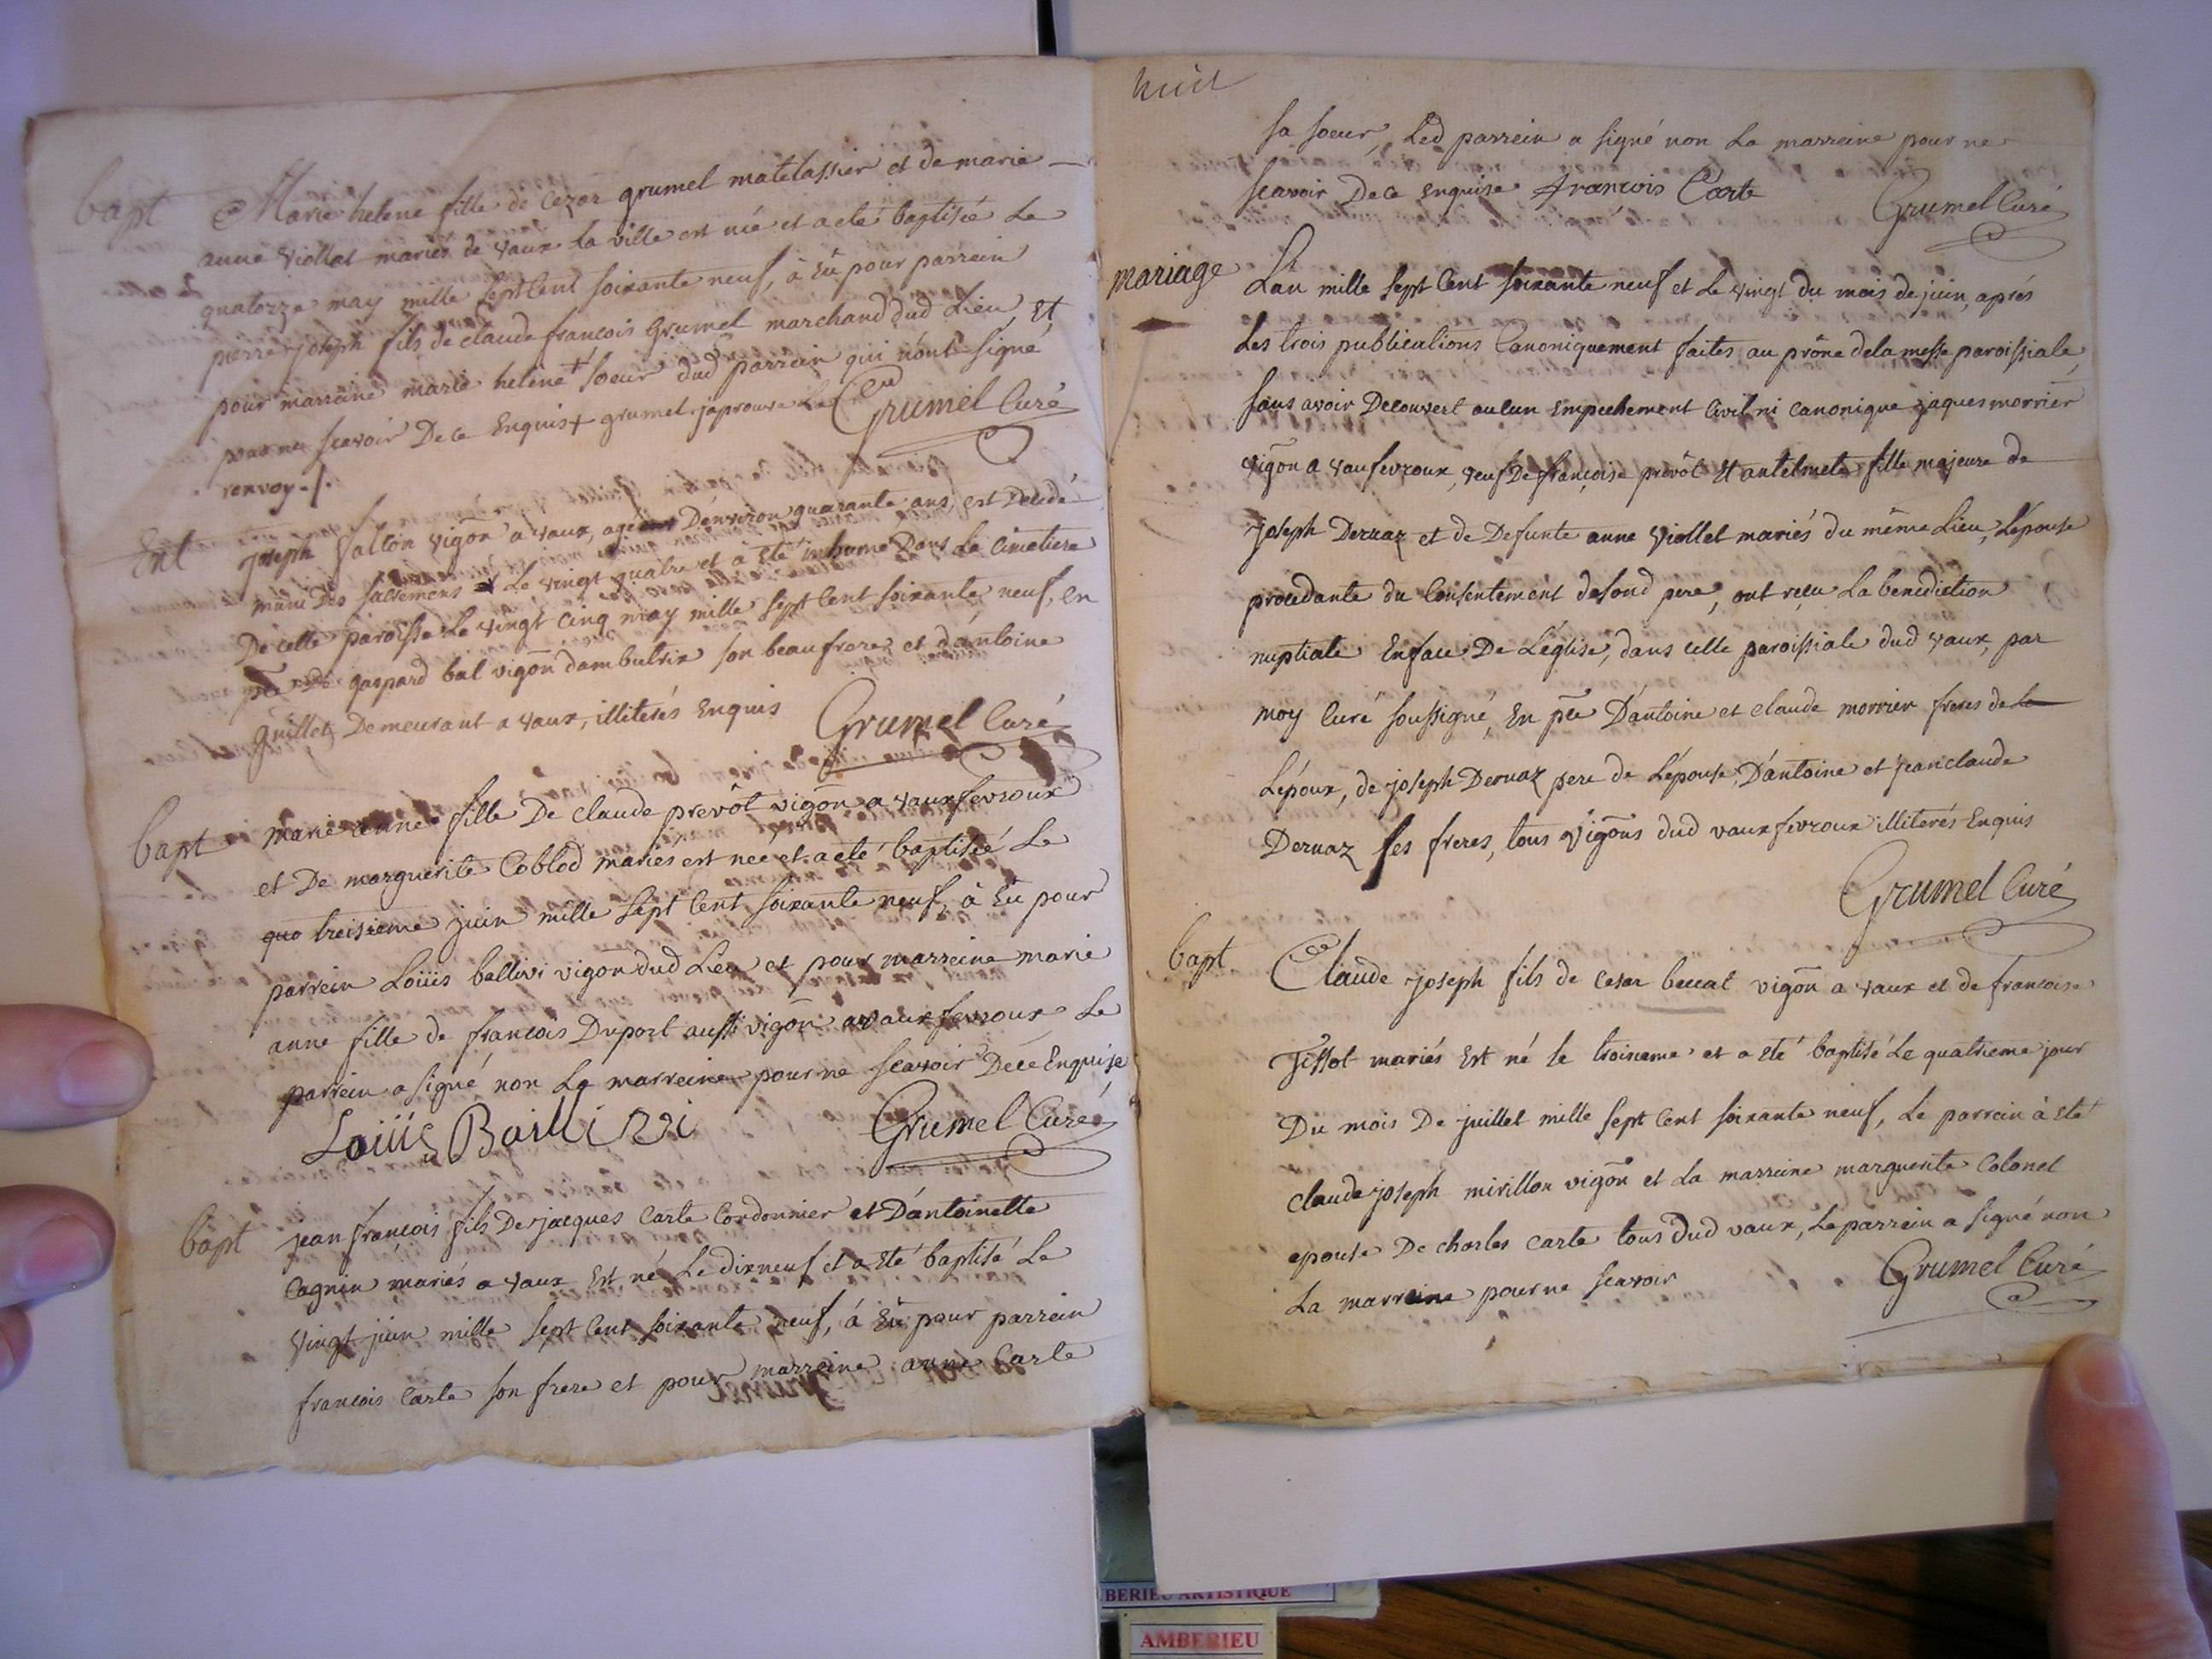 bapt Marie helene fille de Cezar grumel matelassier et de marie
anne Viollet mariés de vaux la ville est née et a eté baptisée Le
quatorze may mille sept Cent soixante neuf, à Eü pour parrein
pierre joseph fils de claude françois Grumel marchand dud Lieu, Et
pour marreine marie helene + soeur dud parrein qui n'ont signé
pour ne scavoir De ce Enquis + grumel japrouve Le Grumel Curé
renvoy ./.
Ent joseph vallon vigōn a vaux, agé Denviron quarante ans, est Decedé
muni Des sacremens Le vingt quatre et a Eté inhumé Dans Le Cimetiere
De cette paroisse Le vingt cinq may mille sept Cent soixante neuf, en
pce De gaspard bal vigōn dambutrix son beaufrere et d'antoine
guillet Demeurant a vaux, illiterés Enquis Grumel Curé
bapt marie anne fille De claude prevôt vigōn a vaux fevroux
et De marguerite Coblod mariés est neé et a eté baptiseé Le
quo treisieme juin mille sept Cent soixante neuf, à Eü pour
parrein Loüis ballivi vigōn dud Lieu et pour marreine marie
anne fille de francois Duport aussi vigōn a vaux fevroux Le
parrein a signé non La marreine pour ne scavoir De ce Enquise
Loüis Ballivi Grumel Curé
bapt jean françois fils De jacques Carte Cordonnier et D'antoinette
Cagnin mariés a vaux Est né Le dixneuf et a Eté baptisé Le
vingt juin mille sept Cent soixante neuf, á Eü pour parrein
francois Carte son frere et pour marreine anne Carte
huit
sa soeur, Led parrein a signé non La marreine pour ne
scavoir De ce Enquise françois Carte Grumel Curé
mariage Lan mille sept Cent soixante neuf et Le vingt du mois de juin, aprés
Les trois publications Canoniquement faites au prône dela messe paroissiale,
sans avoir Decouvert aucun Empechement Civil ni canonique jaques morrier
vigōn a vaufevroux, veuf De françoise prevôt Et antelmete fille majeure de
joseph Dervaz et de Defunte anne Viollet mariés du même Lieu, L'épouse
procedante du Consentement desond pere, ont reçu La benediction
nuptiale En face De L'église, dans celle paroissiale dud vaux, par
moy Curé soussigné, En pce D'antoine et claude morrier freres de la
L'époux, de joseph Dervaz pere de L'épouse, D'antoine et jean claude
Dervaz ses freres, tous vigōns dud vaux fevroux illiterés Enquis
Grumel Curé
bapt Claude joseph fils de Cesar beccat vigōn a vaux et de francoise
Tissot mariés Est né le troisieme et a Eté baptisé Le quatrieme jour
Du mois De juillet mille sept Cent soixante neuf, Le parrein à Eté
claude joseph mirillon vigōn et La marreine marguerite Colonel
epouse De charles carte tous dud vaux, Le parrein a signé non
La marreine pour ne scavoir Grumel Curé
BERIEU ARTISTIQUE
AMBERIEU